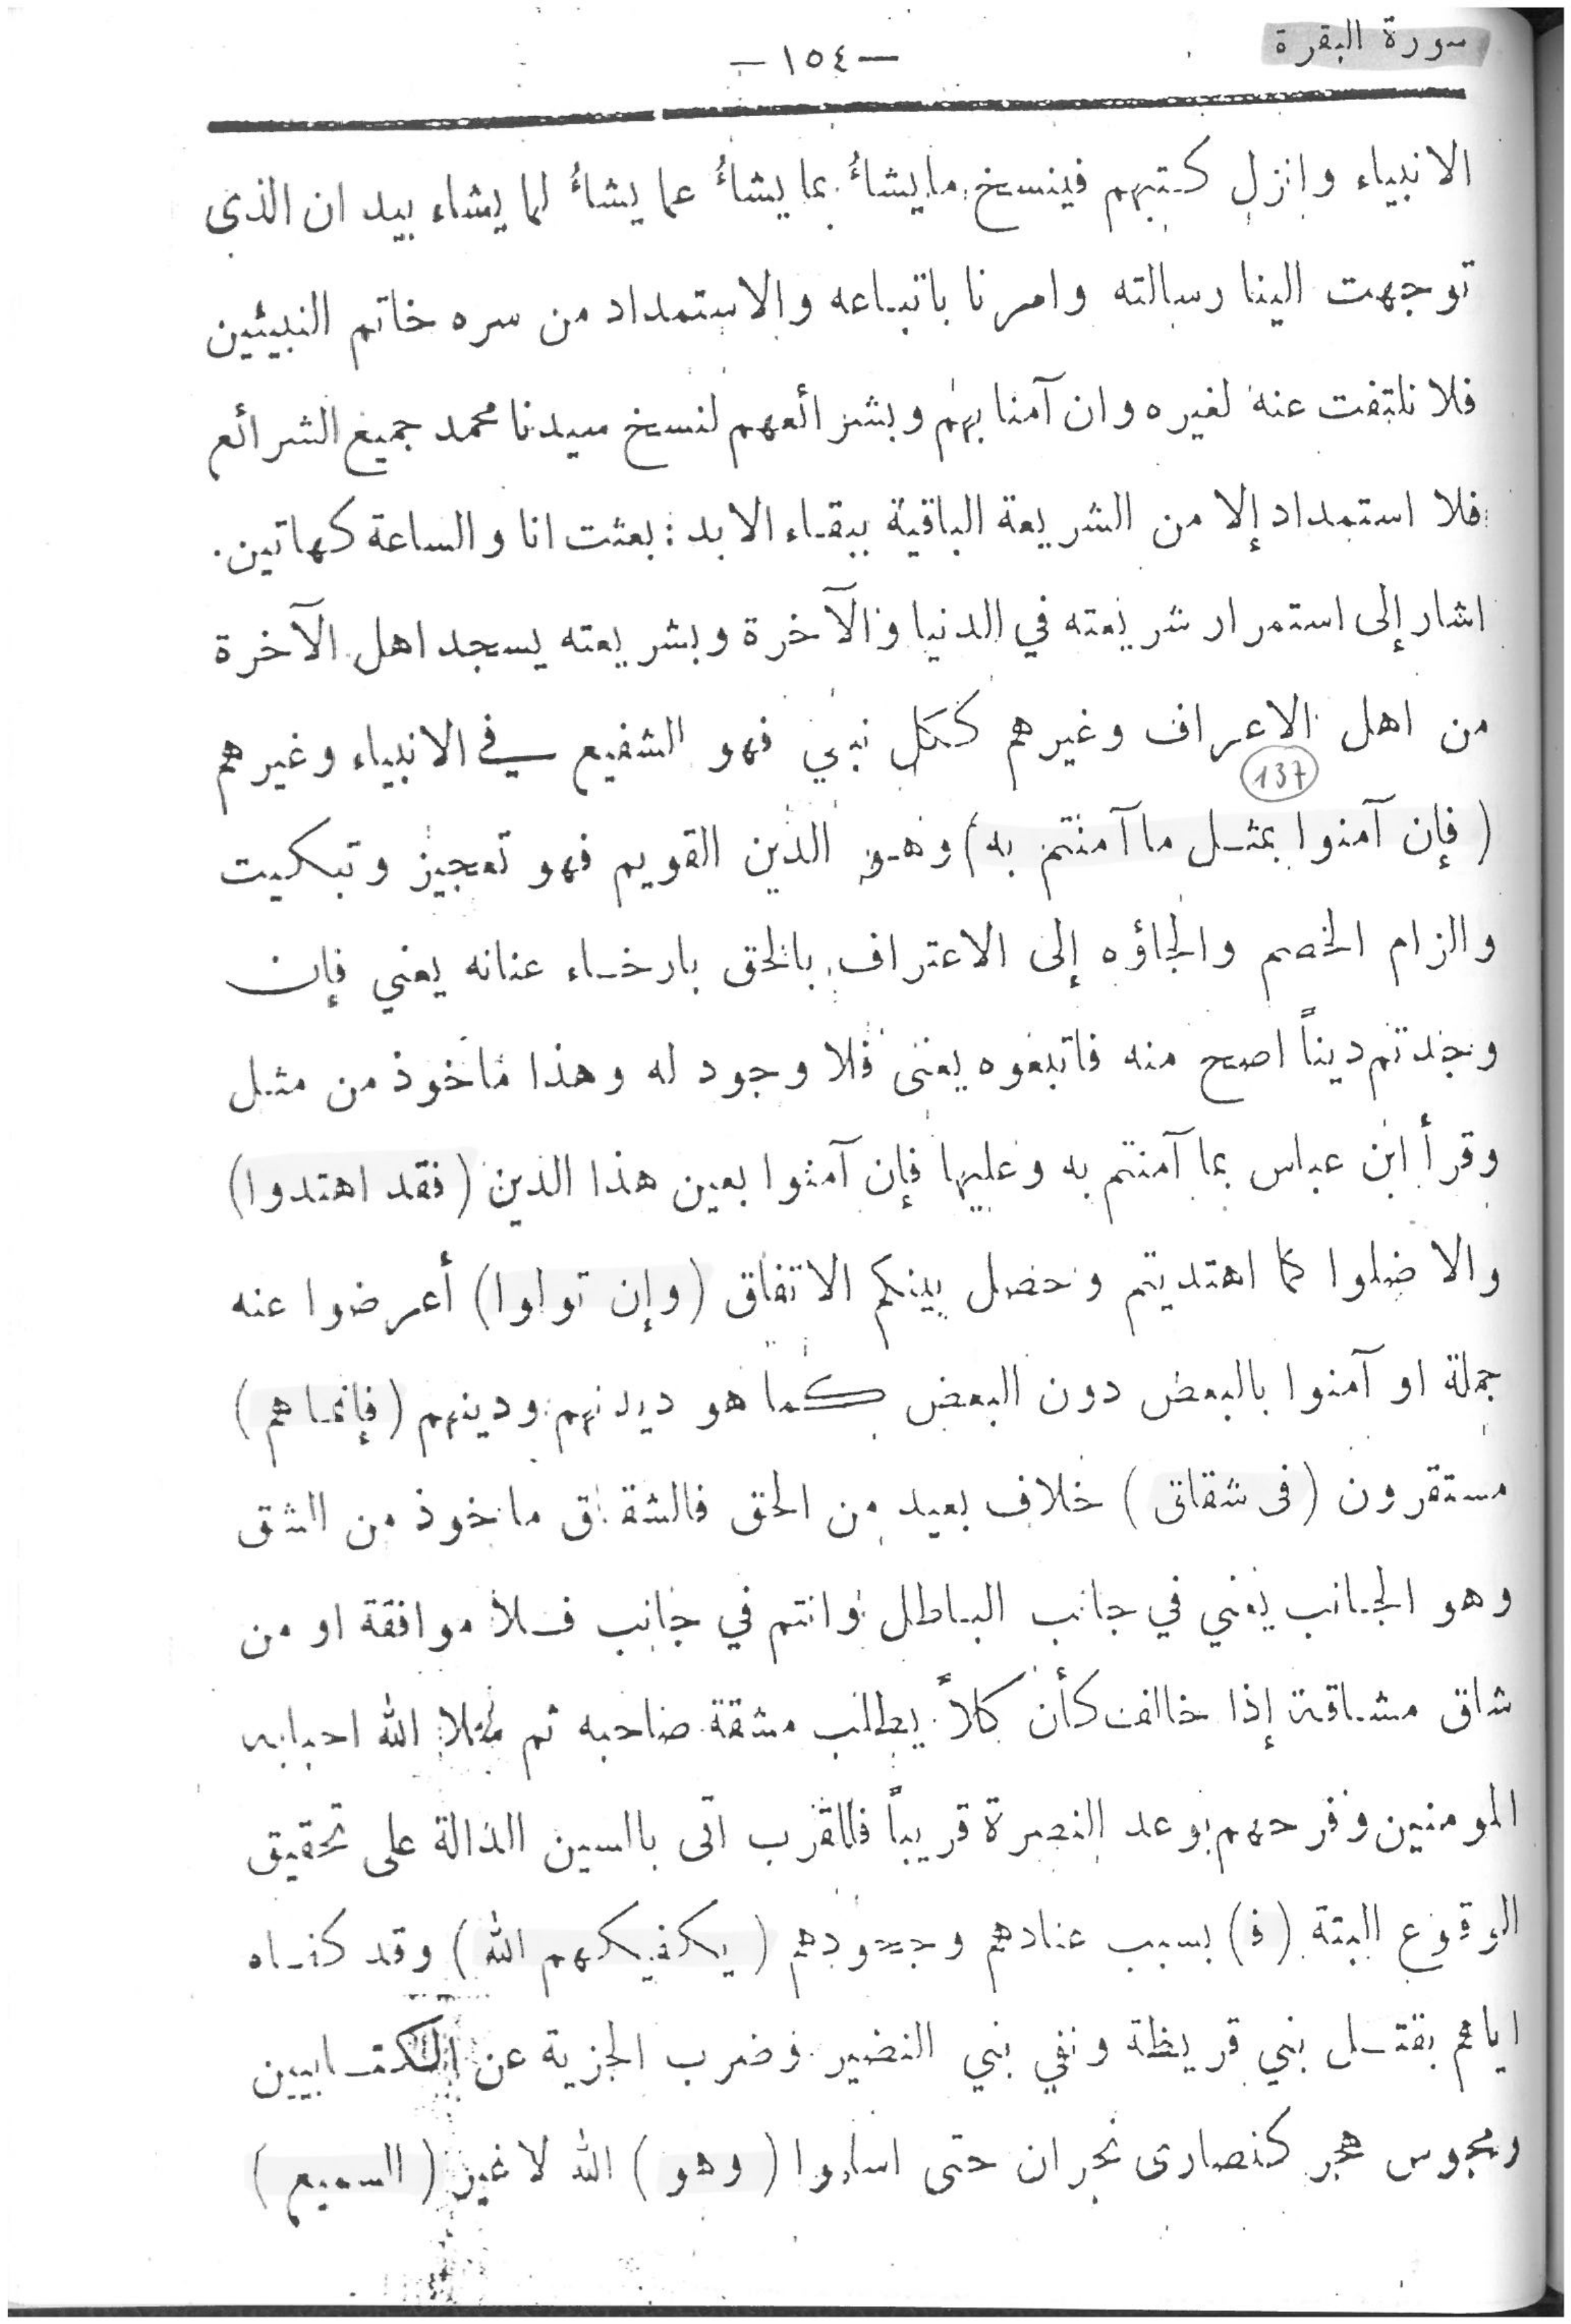 سورة البقرة
—١٥٤—
الانبياء وانزل كتبهم فينسخ ما يشاءُ بما يشاءُ عما يشاءُ لما يشاء بيد ان الذي
توجهت الينا رسالته وامرنا باتباعه والاستمداد من سره خاتم النبيئين
فلا نلتفت عنه لغيره وان آمنا بهم وبشرائعهم لنسخ سيدنا محمد جميع الشرائع
فلا استمداد إلا من الشريعة الباقية ببقاء الابد : بعثت انا والساعة كهاتين.
اشار إلى استمرار شريعته في الدنيا والآخرة وبشريعته يسجد اهل الآخرة
من اهل الاعراف وغيرهم ككل نبي فهو الشفيع في الانبياء وغيرهم
137
(فإن آمنوا بمثل ما آمنتم به) وهو الدين القويم فهو تعجيز وتبكيت
والزام الخصم والجاؤه إلى الاعتراف بالحق بارخاء عنانه يعني فإن
وجدتم ديناً اصح منه فاتبعوه يعنى فلا وجود له وهذا ماخوذ من مثل
وقرأ ابن عباس بما آمنتم به وعليها فإن آمنوا بعين هذا الدين (فقد اهتدوا)
والا ضلوا كما اهتديتم وحصل بينكم الاتفاق (وإن تولوا) أعرضوا عنه
جملة او آمنوا بالبعض دون البعض كما هو ديدنهم ودينهم (فإنما هم)
مستقرون (فى شقاق) خلاف بعيد من الحق فالشقاق ماخوذ من الشق
وهو الجانب يعني في جانب الباطل وانتم في جانب فلا موافقة او من
شاق مشاقة إذا خالف كأن كلاً يطلب مشقة صاحبه ثم الله احبابه
المومنين وفرحهم بوعد النصرة قريباً فللقرب اتى بالسين الدالة على تحقيق
الوقوع البتة (فـ) بسبب عنادهم وجحودهم (يكفيكهم الله) وقد كفاه
اياهم بقتل بني قريظة ونفي بني النضير وضرب الجزية عن الكتابيين
ومجوس هجر كنصارى نجران حتى اسلموا (وهو) الله لا غير (السميع)